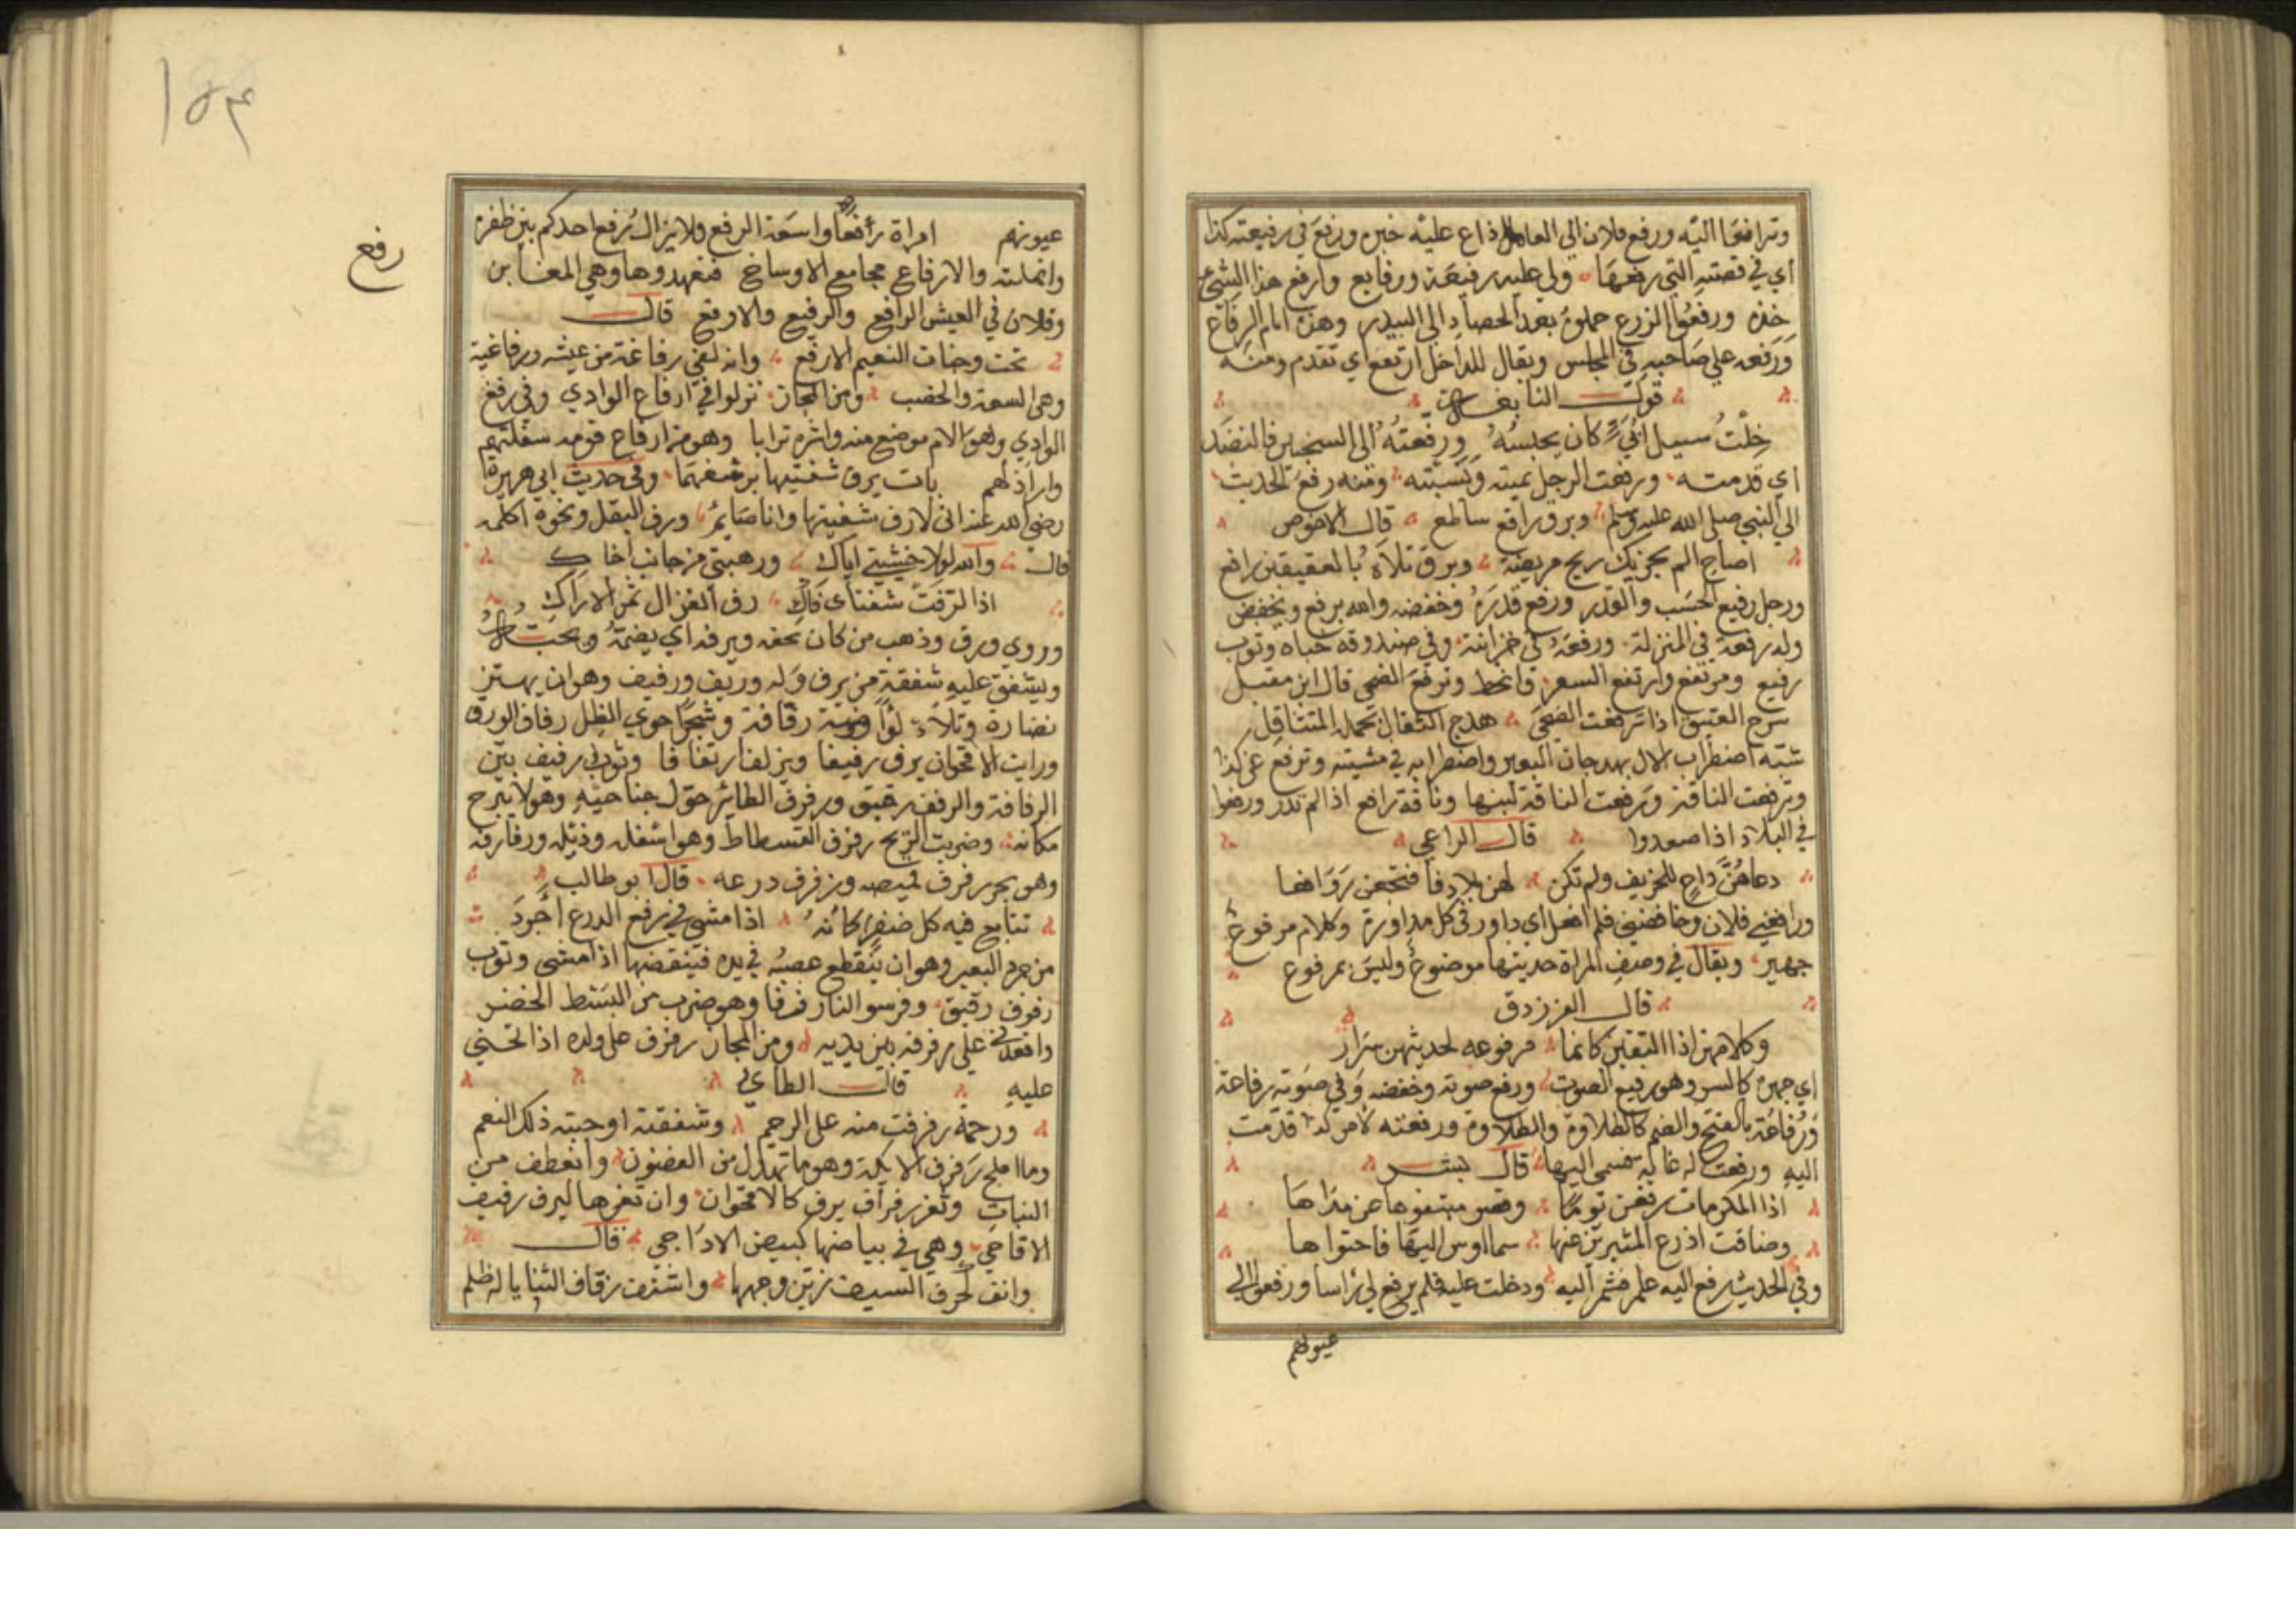 وترافعا اليه ورفع فلان الي العامل اذاع عليه خبره ورفع في رفيعته كذا
اي في قصته التي رفعها ولي عليه رفيعة ورفايع وارفع هذا الشيء
خذه ورفعوا الزرع حملوه بعد الحصاد الي البيدر وهذه ايام الرفاع
ورفعه علي صاحبه في المجلس ويقال للداخل ارتفع اي تقدم ومنه
قول النابغة
خلت سبيل اتي كان يحبسه ورفعته الى السجفين فالنضد
اي قدمته ورفعت الرجل نميته ونسبته ومنه رفع الحديث
الي النبي صلى الله عليه وسلم وبرق رافع ساطع قال الاحوص
اصاح الم يحزنك ريح مريضة وبرق تلألأ بالعقيقين رافع
ورجل رفيع الحسب والقدر ورفع قدره وخفضه والله يرفع ويخفض
وله رفعة في المنزلة ورفعه في خزانته وفي صندوقه خباه وثوب
رفيع ومرتفع وارتفع السعر وانحط وترفع الضحي قال ابن مقبل
سرح العنيق اذا ترفعت الضحي هدج الثفال بحمله المتثاقل
شبه اضطراب الال بهدجان البعير واضطرابه في مشيته وترفع عن كذا
وترفعت الناقة ورفعت الناقة لبنها وناقة رافع اذا لم تدر ورفعوا
في البلاد اذا صعدوا قال الراعي
دعاهن داع للخريف ولم تكن لهن بلادا فانتجعن روافعا
ورافعني فلان وخافضني فلم افعل اي داورني كل مداورة وكلام مرفوع
جهير ويقال في وصف المراة حديثها موضوع وليس بمرفوع
قال الفرزدق
وكلامهن اذا التقين كانما مرفوعه لحديثهن سرار
اي جهره كالسر وهو رفيع الصوت ورفع صوته وخفضه وفي صوته رفاعة
ورفاعة بالفتح والضم كالطلاوة والطلاوة ورفعته لامر كذا قدمته
اليه ورفعت له غاية فسمى اليها قال بشر
اذا المكرمات رفعن يوما وقصر مبتغوها عن مداها
وضاقت اذرع المثرين عنها سما اوس اليها فاحتواها
وفي الحديث رفع اليه علم فشمر اليه ودخلت عليه فلم يرفع لي راسا ورفعوا الي
عيونهم
١٥٤
رفغ
عيونهم امراة رفغا واسعة الرفغ ولا يزال رفغ احدكم بين ظفره
وانملته والارفاغ مجامع الاوساخ فتعهدوها وهي المغابن
وفلان في العيش الرافغ والرفيغ والارفغ قال
تحت وجنات النعيم الارفغ وانه لفي رفاغة من عيشه ورفاغية
وهي السعة والخصب ومن المجاز نزلوا في ارفاغ الوادي وفي رفغ
الوادي وهو الام موضع منه واشره ترابا وهو من ارفاغ قومه سفلتهم
واراذلهم بات يرف شفتيها يرشفهما وفي حديث ابي هريرة
رضي الله عنه اني لارف شفتيها وانا صايم ورف البقل ونحوه اكله
قال والله لولا خشيتي اباك ورهبتي من جانب اخاك
اذا لرفت شفتاي فاك رف الغزال ثمر الاراك
وروي ورق وذهب من كان يحفه ويرفه اي يضمه ويحبه
ويشفق عليه شفقة من يرف وله وريف ورفيف وهو ان يهتز
نضارة وتلألؤا وروضة رفافة وشجر احوي الظل رفاف الورق
ورايت الاقحوان يرف رفيفا ويرتف ارتفافا وثوب رفيف بين
الرفافة والرفف رقيق ورفرف الطائر حول جناحيه وهو لا يبرح
مكانه وضربت الريح رفرف الفسطاط وهو اسفله وذيله ورفارفه
وهو يجر رفرف قميصه ورفرف درعه قال ابو طالب
تتابع فيه كل صقر كانه اذا مشى في رفرف الدرع احرد
من حرد البعير وهو ان ينقطع عصبه في يده فينفضها اذا مشى وثوب
رفرف رقيق وفرشوا لنا رفرفا وهو ضرب من البسط الخضر
واقعدني على رفرفه بين يديه ومن المجاز رفرف على ولده اذا تحنى
عليه قال الطائي
ورحمة رفرفت منه على الرحم وشفقته اوجبته ذلك النعم
وما املح رفرف الايكة وهو ما تهدل من الغصون وانعطف من
النبات وثغر رفراف يرف كالاقحوان وان ثغرها ليرف رفيف
الاقاحي وهي في بياضها كبيض الاداحي قال
وانف كحرف السيف زين وجهها واشنب رفاف الثنايا له ظلم